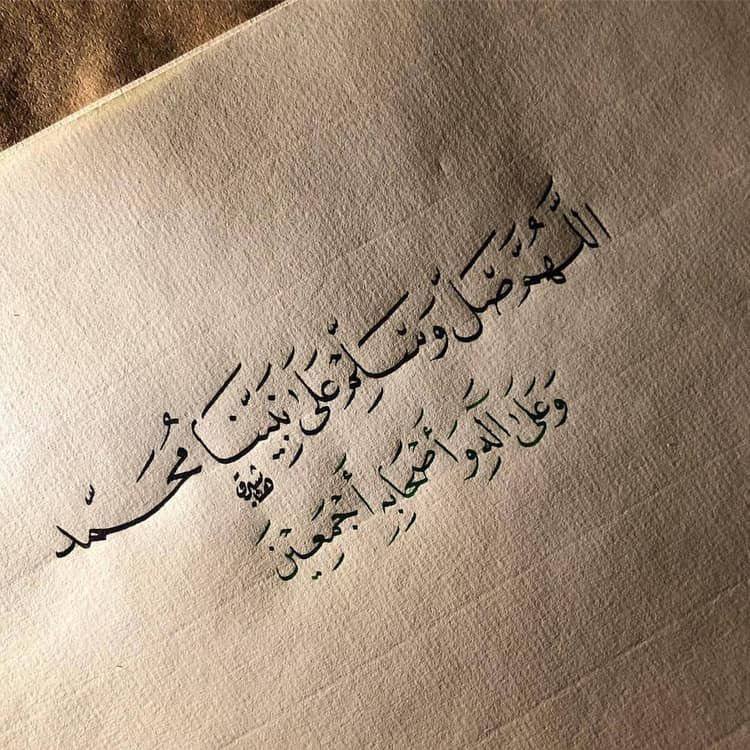 اللَّهُمَّ صَلِّ وَسَلِّمْ عَلَىٰ نَبِيِّنَا مُحَمَّد
وَعَلَىٰ آلِهِ وَأَصْحَابِهِ أَجْمَعِيْنَ